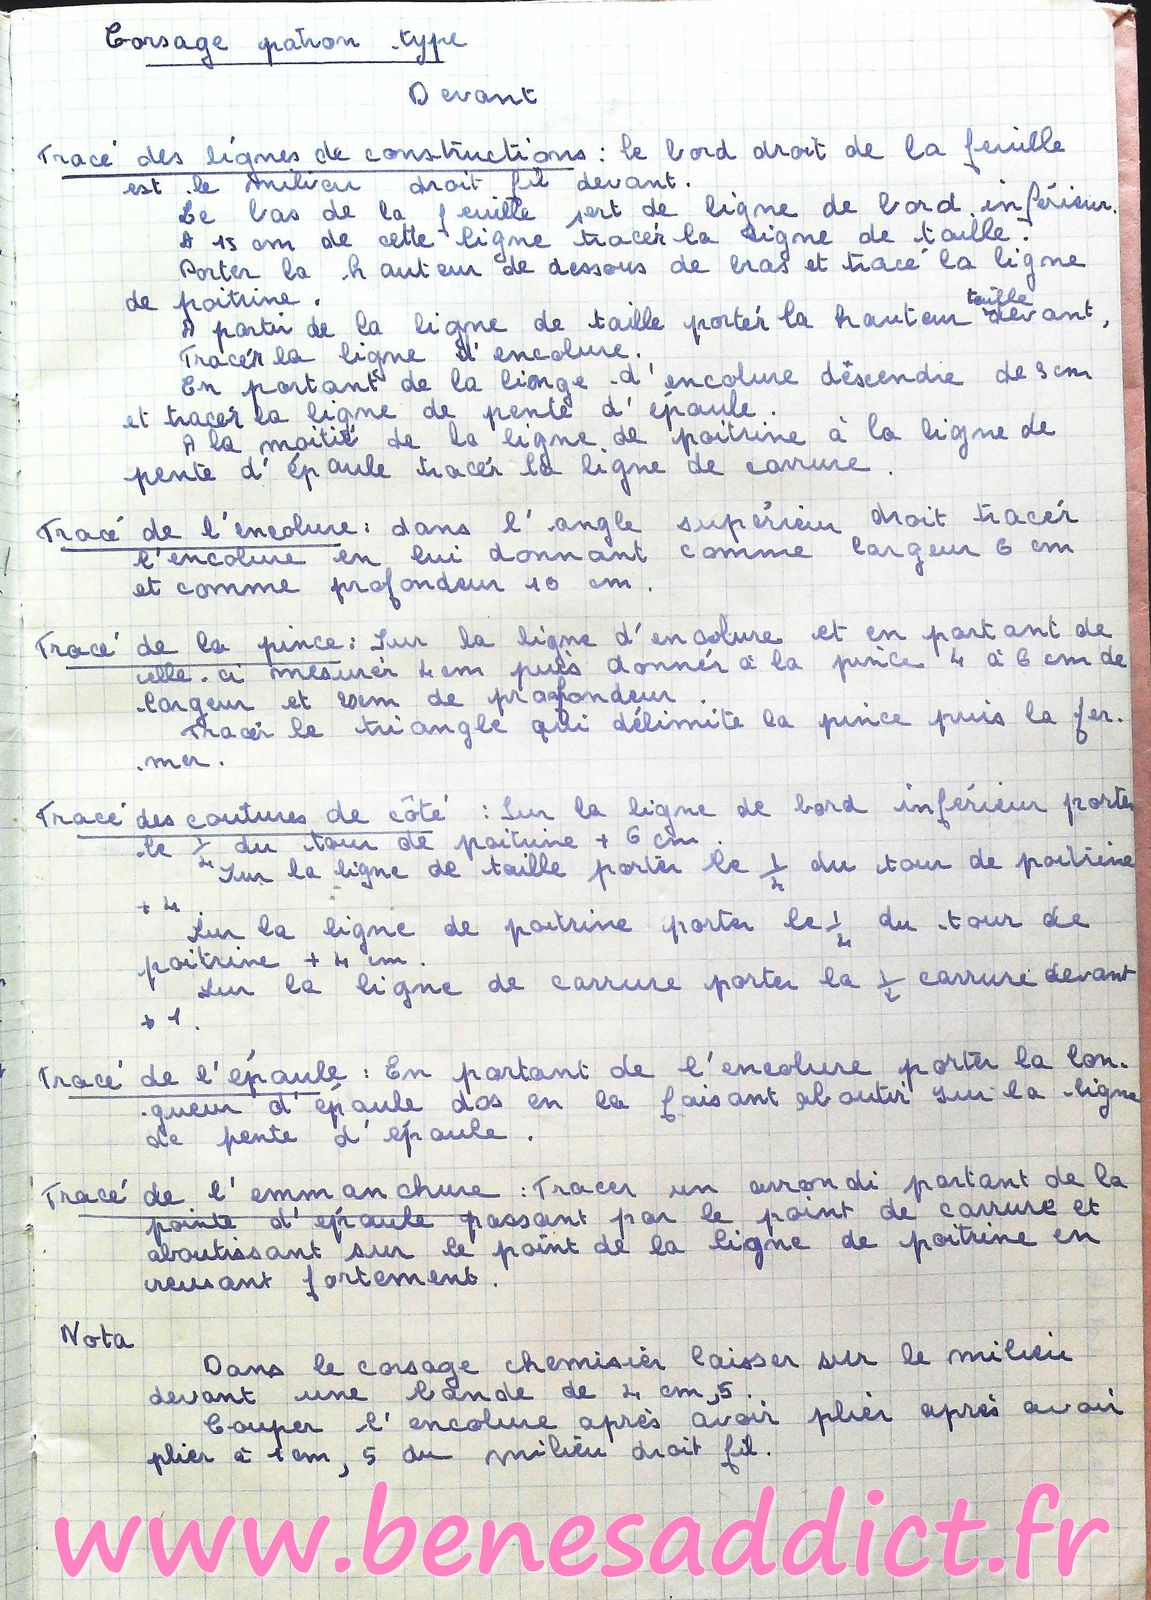 Corsage patron type
Devant
Tracé des lignes de constructions : le bord droit de la feuille
est le milieu droit fil devant.
Le bas de la feuille sert de ligne de bord inférieur.
A 15 cm de cette ligne tracer la ligne de taille.
Porter la hauteur de dessous de bras et tracé la ligne
de poitrine.
A partir de la ligne de taille porter la hauteur taille devant,
Tracer la ligne d'encolure.
En partant de la lionge d'encolure déscendre de 3 cm
et tracer la ligne de pente d'épaule.
A la moitié de la ligne de poitrine à la ligne de
pente d'épaule tracer la ligne de carrure.
Tracé de l'encolure : dans l'angle supérieur droit tracer
l'encolure en lui donnant comme largeur 6 cm
et comme profondeur 10 cm.
Tracé de la pince : Sur la ligne d'encolure et en partant de
celle-ci mesurer 4 cm puis donner à la pince 4 à 6 cm de
largeur et cm de profondeur.
Tracer le triangle qui délimite la pince puis la fer-
mer.
Tracé des coutures de côté : Sur la ligne de bord inférieur porter
le 1/4 du tour de poitrine + 6 cm.
Sur la ligne de taille porter le 1/4 du tour de poitrine
+ 4
Sur la ligne de poitrine porter le 1/4 du tour de
poitrine + 4 cm.
Sur la ligne de carrure porter la 1/2 carrure devant
+ 1.
Tracé de l'épaule : En partant de l'encolure porter la lon-
gueur d'épaule dos en la faisant aboutir sur la ligne
de pente d'épaule.
Tracé de l'emmanchure : Tracer un arrondi partant de la
pointe d'épaule passant par le point de carrure et
aboutissant sur le point de la ligne de poitrine en
creusant fortement.
Nota
Dans le corsage chemisier laisser sur le milieu
devant une bande de 4 cm,5.
Couper l'encolure après avoir plier après avoir
plier à 1 cm,5 du milieu droit fil.
www.benesaddict.fr